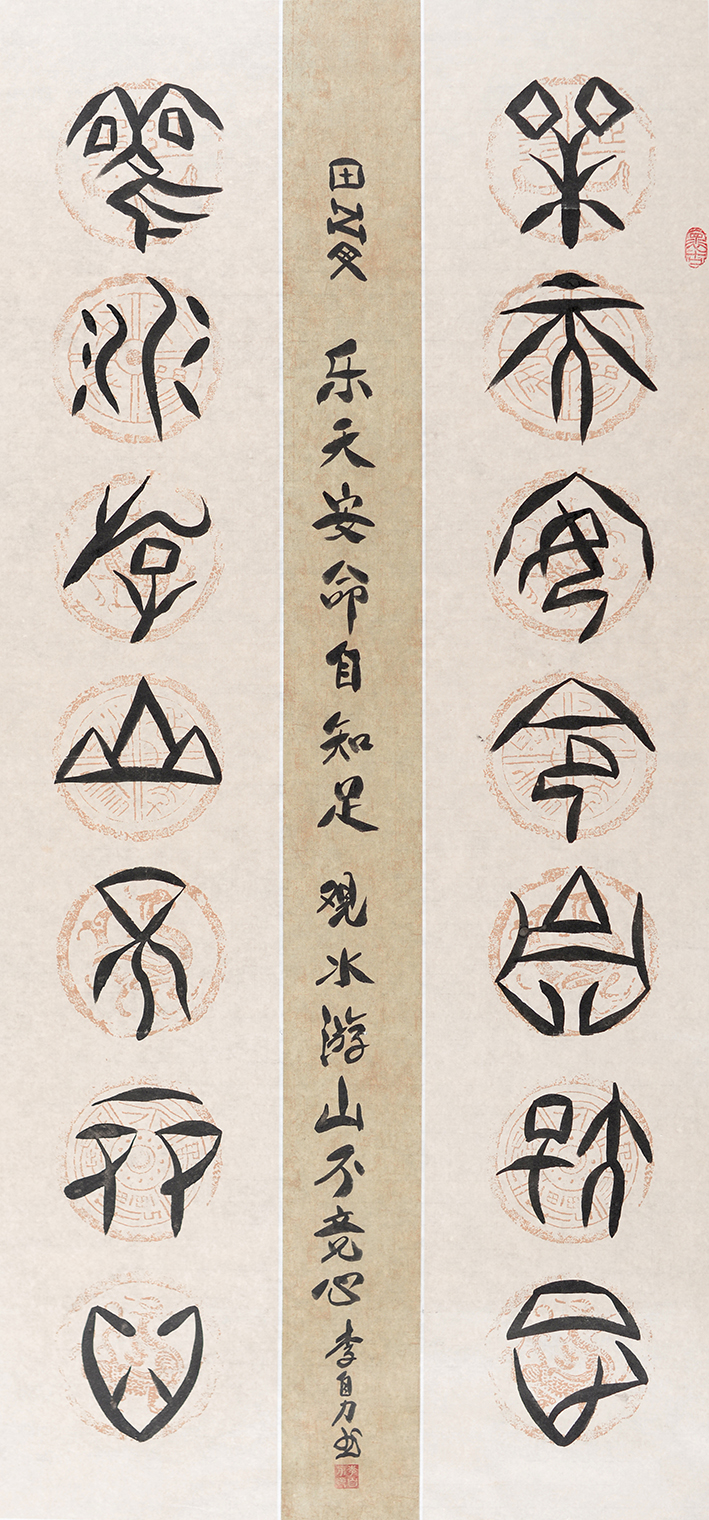 樂天安命自知足
乐天安命自知足 观水游山不竞心 李自力书
觀水游山不競心